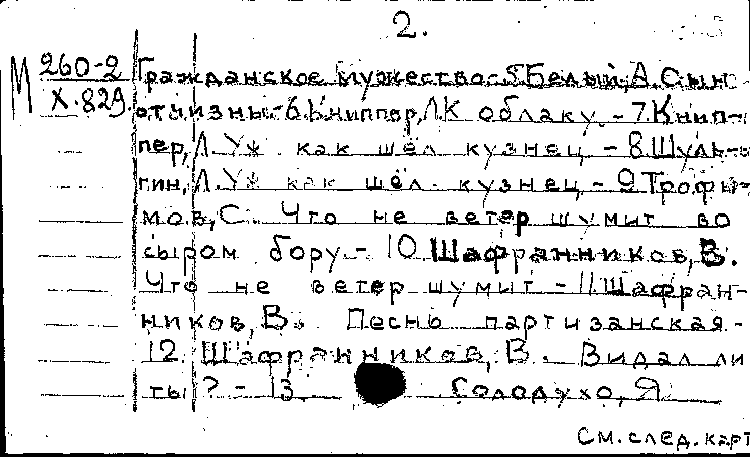 2.
М 260-2 Гражданское мужество-5 Белый, А. Сын
X.829. отчизны-6. Книппер, Л. К облаку. - 7. Книп-
пер, Л. Уж как шёл кузнец - 8. Шуль-
гин, Л. Уж как шёл. кузнец - 9 Трофи-
мов, С. Что не ветер шумит во
сыром бору. - 10 Шафранников, В.
Что не ветер шумит - 11. Шафран-
ников, В. Песнь партизанская -
12. Шафранников, В. Видал ли
ты? - 13. Солодухо, Я
См. след. карт